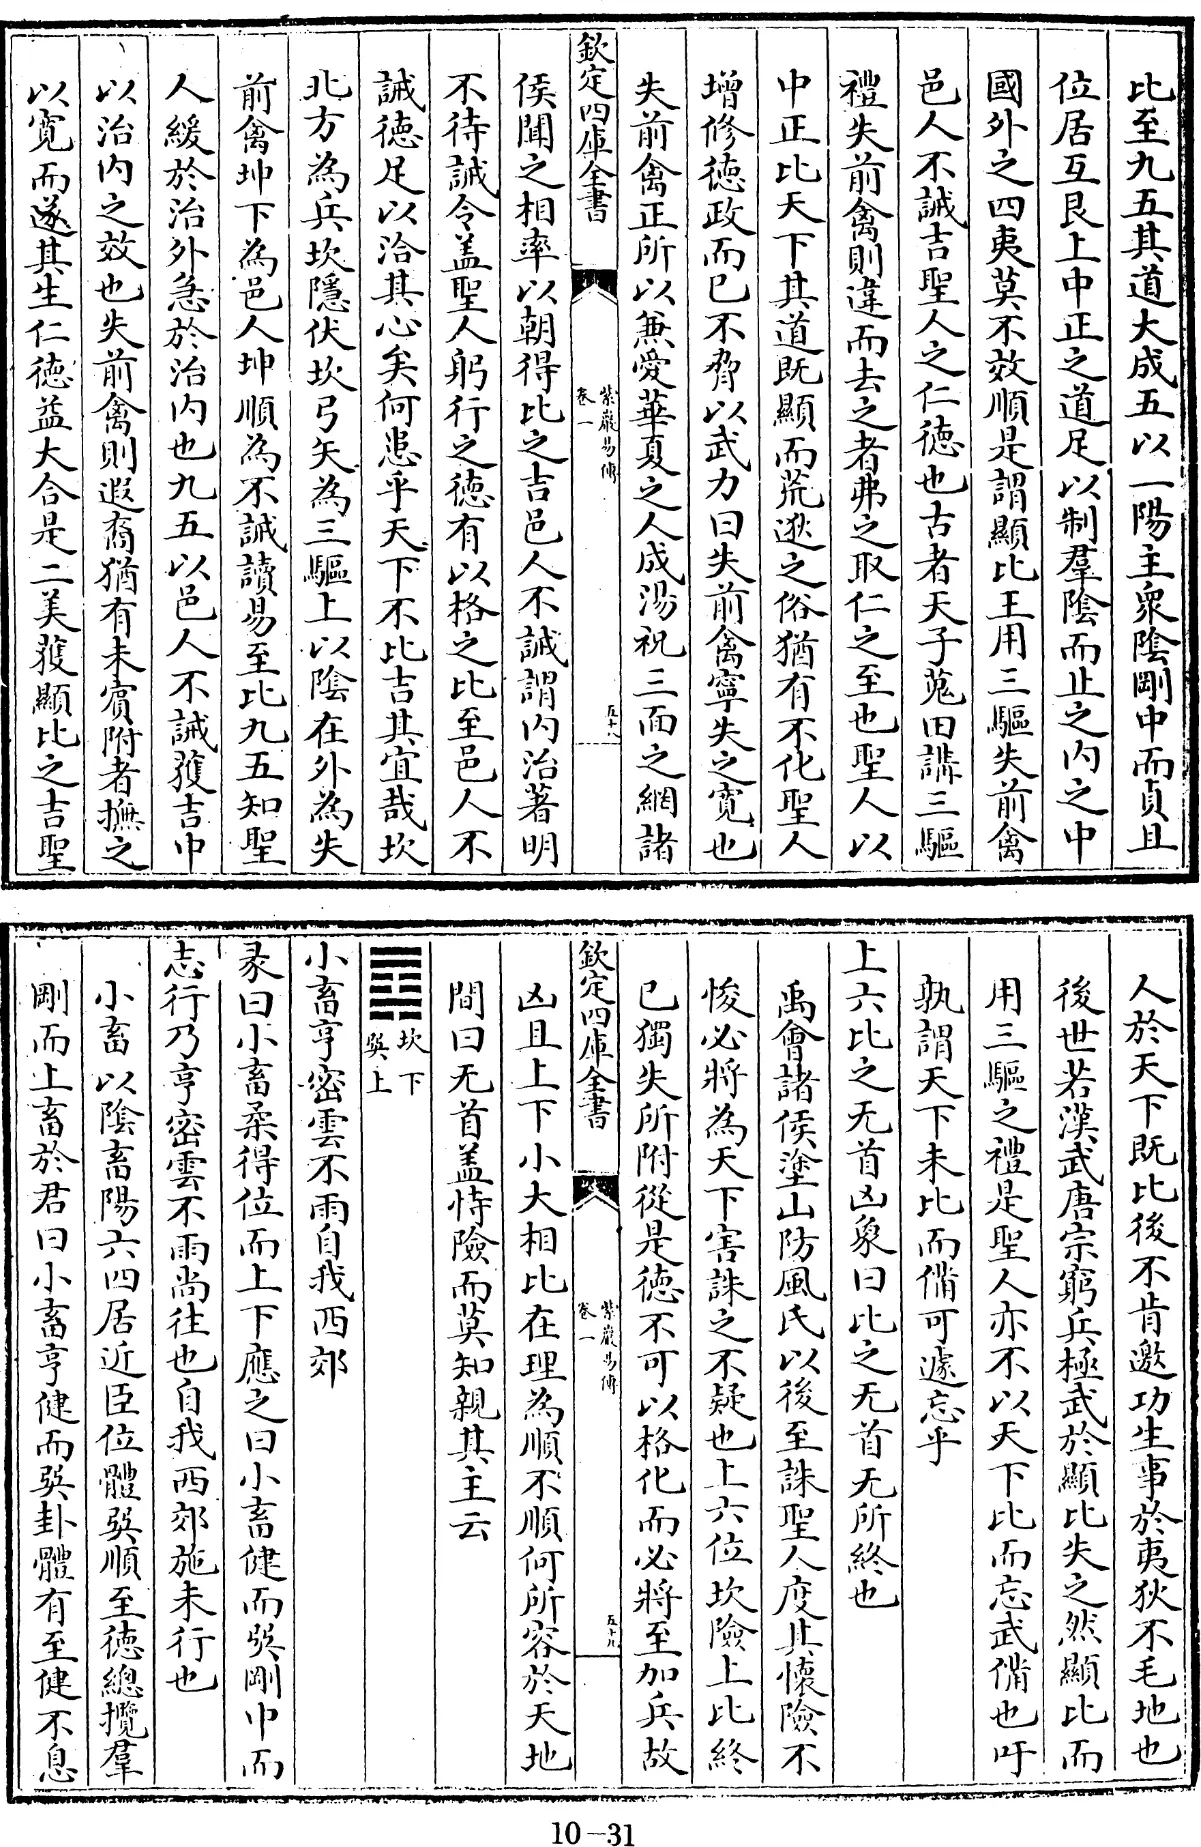 比至九五其道大成五以一陽主衆陰剛中而貞且
位居互艮上中正之道足以制羣陰而止之内之中
國外之四夷莫不效順是謂顯比王用三驅失前禽
邑人不誡吉聖人之仁德也古者天子蒐田講三驅
禮失前禽則違而去之者弗之取仁之至也聖人以
中正比天下其道既顯而荒逖之俗猶有不化聖人
增修德政而已不脅以武力曰失前禽寧失之寛也
失前禽正所以兼愛華夏之人成湯祝三面之網諸
欽定四庫全書
紫巖易傳
卷一
五十八
侯聞之相率以朝得比之吉邑人不誡謂内治著明
不待誡令盖聖人躬行之德有以格之比至邑人不
誡德足以洽其心矣何患乎天下不比吉其宜哉坎
北方為兵坎隱伏坎弓矢為三驅上以陰在外為失
前禽坤下為邑人坤順為不誡讀易至比九五知聖
人緩於治外急於治内也九五以邑人不誡獲吉中
以治内之效也失前禽則遐裔猶有未賓附者撫之
以寛而遂其生仁德益大合是二美獲顯比之吉聖
人於天下既比後不肯邀功生事於夷狄不毛地也
後世若漢武唐宗窮兵極武於顯比失之然顯比而
用三驅之禮是聖人亦不以天下比而忘武備也吁
孰謂天下未比而備可遽忘乎
上六比之无首凶象曰比之无首无所終也
禹會諸侯塗山防風氏以後至誅聖人度其懷險不
悛必將為天下害誅之不疑也上六位坎險上比終
已獨失所附從是德不可以格化而必將至加兵故
欽定四庫全書
紫巖易傳
卷一
五十九
凶且上下小大相比在理為順不順何所容於天地
間曰无首盖恃險而莫知親其主云
坎下
巽上
小畜亨密雲不雨自我西郊
彖曰小畜柔得位而上下應之曰小畜健而巽剛中而
志行乃亨密雲不雨尚往也自我西郊施未行也
小畜以陰畜陽六四居近臣位體巽順至德總攬羣
剛而上畜於君曰小畜亨健而巽卦體有至健不息
10-31